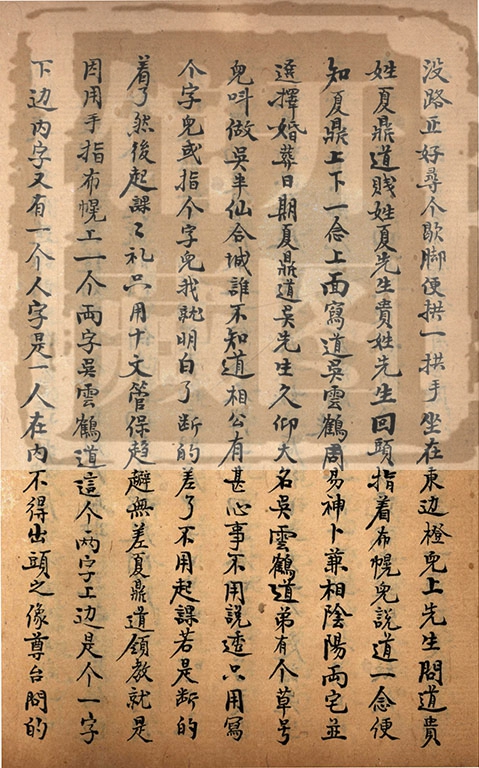 没路正好尋个歇脚便拱一拱手坐在東边橙兒上先生問道貴
姓夏鼎道賎姓夏先生貴姓先生回頭指着布幌兒說道一念便
知夏鼎上下一念上面寫道吳雲鶴周易神卜兼相陰陽両宅並
選擇婚葬日期夏鼎道吳先生久仰大名吳雲鶴道弟有个草号
兒呌做吳半仙合城誰不知道相公有甚心事不用說透只用寫
个字兒或指个字兒我就明白了断的差了不用起課若是断的
着了然後起課了礼只用十文管保趋避無差夏鼎道領教就是
因用手指布幌工一个両字吳雲鶴道這个両字上边是个一字
下边内字又有一个人字是一人在内不得出頭之像尊台問的